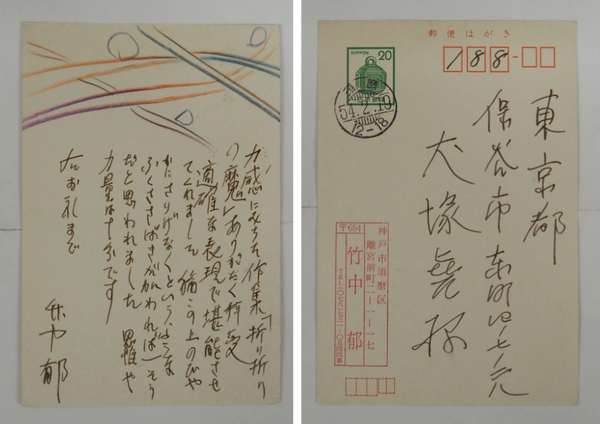 力感にみちた作集「折り折り
の魔」ありがたく拝受
適確な表現で堪能させ
てくれました 猶この上のびや
かにさりげなくという
ふくささばきがくわわれば一そう
だと思われました 思惟や
力量は十分です
右お礼まで
竹中郁
郵便はがき
NIPPON
20
188
須磨
54.2.10
12-18
東京都
保谷市東町四ノ七ノ元
大塚堯様
神戸市須磨区
離宮前町二ー一ー一七
竹中郁
〒654